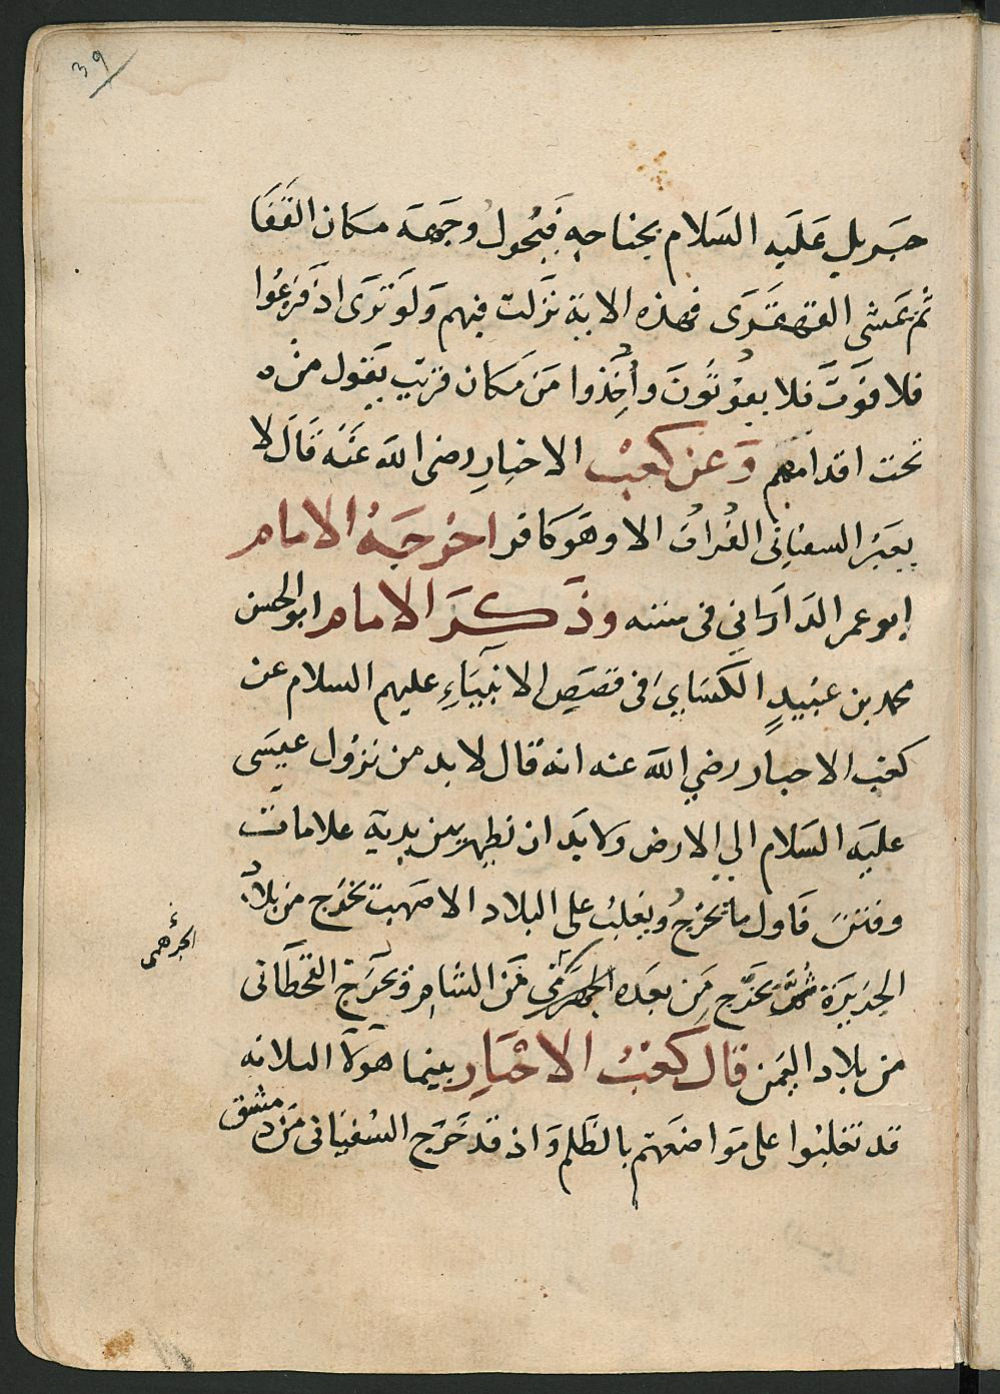 39
جبريل عليه السلام بجناحه فيحول وجهه مكان القفا
ثم تمشى القهقرى فهذه الاية نزلت فيهم ولو ترى اذ فزعوا
فلا فوت فلا يفوتون وأخذوا من مكان قريب يقول من
تحت اقدامهم وعن كعب الاخبار رضى الله عنه قال لا
يعبر السفيانى الفرات الا وهو كافر اخرجه الامام
ابو عمر الدارانى فى سننه وذكر الامام ابو الحسن
محمد بن عبيد الكسايى فى قصص الانبياء عليهم السلام عن
كعب الاحبار رضي الله عنه انه قال لا بد من نزول عيسى
عليه السلام الي الارض ولا بد ان تظهر بين يديه علامات
وفتن فاول ما يخرج ويغلب على البلاد الاصهب تخرج من بلاد
الجزيرة ثم يخرج من بعده الجرهمى من الشام ويخرج القحطانى
الجرهمى
من بلاد اليمن قال كعب الاحبار بينما هولآ الثلاثه
قد تغلبوا على مواضعهم بالظلم واذ قد خرج السفيانى من دمشق